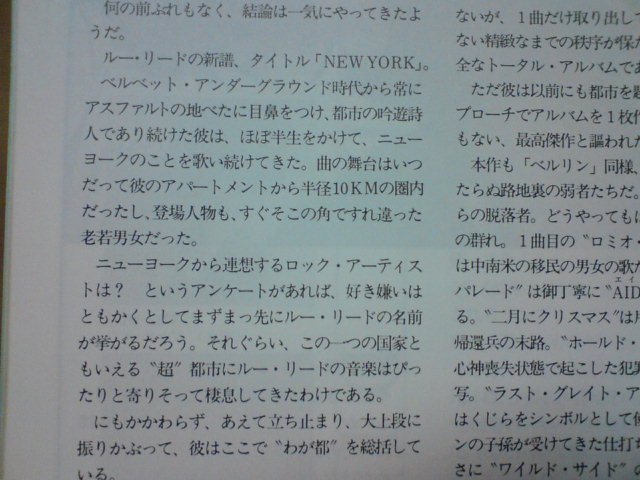 何の前ぶれもなく、結論は一気にやってきたよ
うだ。
ルー・リードの新譜、タイトル「NEW YORK」。
ベルベット・アンダーグラウンド時代から常に
アスファルトの地べたに目鼻をつけ、都市の吟遊詩
人であり続けた彼は、ほぼ半生をかけて、ニュー
ヨークのことを歌い続けてきた。曲の舞台はいつ
だって彼のアパートメントから半径10KMの圏内
だったし、登場人物も、すぐそこの角ですれ違った
老若男女だった。
ニューヨークから連想するロック・アーティス
トは？　というアンケートがあれば、好き嫌いは
ともかくとしてまずまっ先にルー・リードの名前
が挙がるだろう。それぐらい、この一つの国家と
もいえる〝超〟都市にルー・リードの音楽はぴっ
たりと寄りそって棲息してきたわけである。
にもかかわらず、あえて立ち止まり、大上段に
振りかぶって、彼はここで〝わが都〟を総括して
いる。
ないが、１曲だけ取り出して
ない精緻なまでの秩序が保た
全なトータル・アルバムであ
ただ彼は以前にも都市を題
プローチでアルバムを１枚作
もない、最高傑作と謳われた
本作も「ベルリン」同様、
たらぬ路地裏の弱者たちだ。
らの脱落者。どうやっても
の群れ。１曲目の〝ロミオ・
は中南米の移民の男女の歌だ
パレード〟は御丁寧に〝AID
エイ
る。〝二月にクリスマス〟は
帰還兵の末路。〝ホールド・
心神喪失状態で起こした犯罪
写。〝ラスト・グレイト・ア
はくじらをシンボルとして使
ンの子孫が受けてきた仕打ち
さに〝ワイルド・サイド〟の